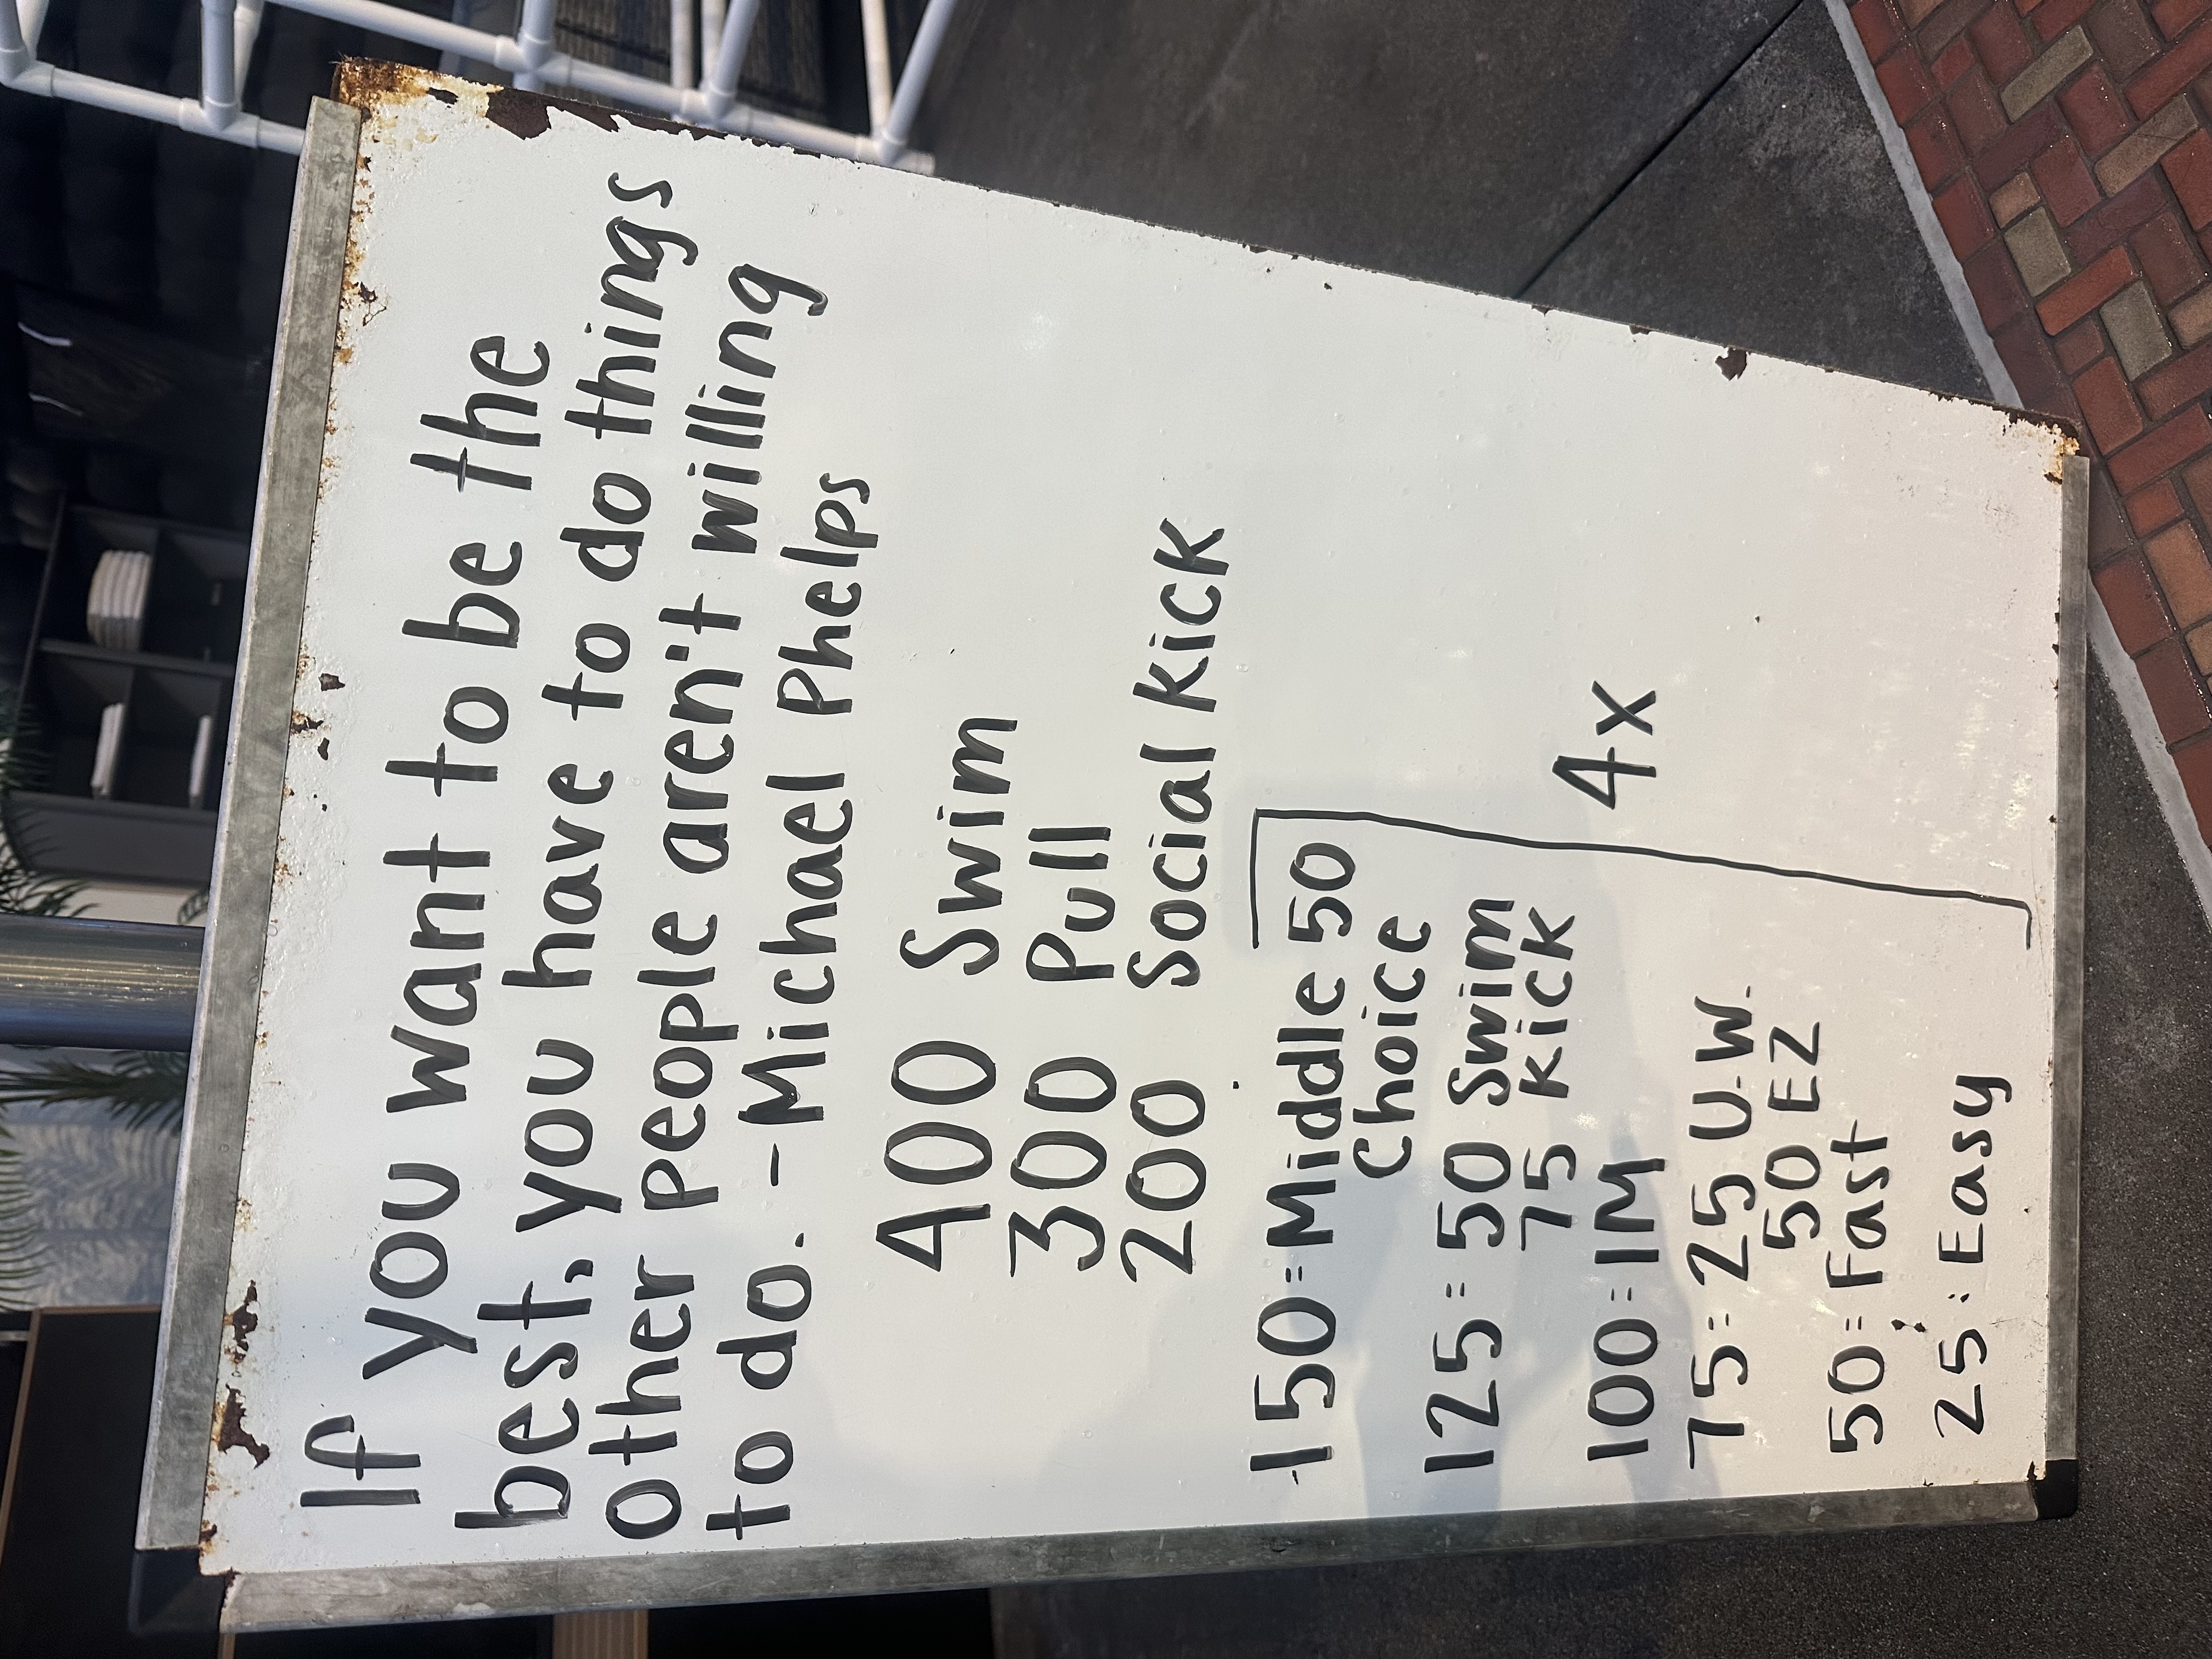 If you want to be the
best, you have to do things
other people aren't willing
to do. - Michael Phelps
400 Swim
300 Pull
200 Social Kick
150 = Middle 50
Choice
125 = 50 Swim
75 Kick
100 = IM
4x
75 = 25 U.W.
50 EZ
50 = Fast
25 = Easy